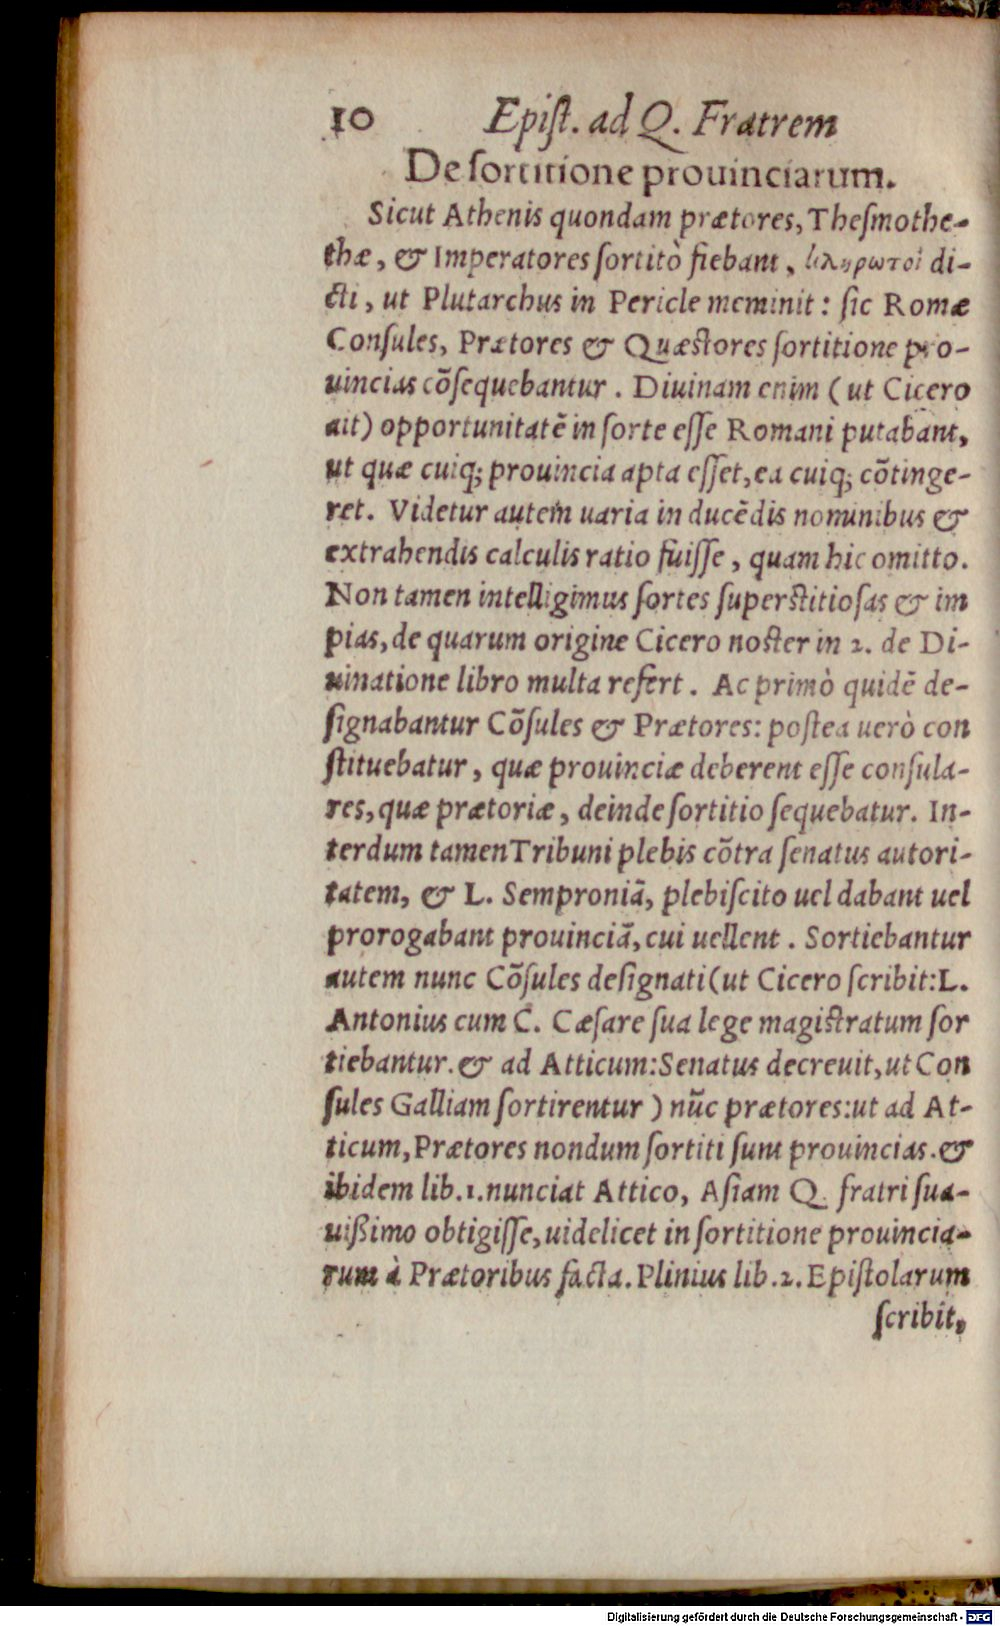 10 Epiſt. ad Q. Fratrem
De ſortitione prouinciarum.
Sicut Athenis quondam prætores, Theſmothe-
thæ, & Imperatores ſortitò fiebant, κληρωτοὶ di-
cti, ut Plutarchus in Pericle meminit: ſic Romæ
Conſules, Prætores & Quæstores ſortitione pro-
uincias cōſequebantur. Diuinam enim (ut Cicero
ait) opportunitatē in ſorte eſſe Romani putabant,
ut quæ cuiq; prouincia apta eſſet, ea cuiq; cōtinge-
ret. Videtur autem uaria in ducēdis nominibus &
extrahendis calculis ratio fuiſſe, quam hic omitto.
Non tamen intelligimus ſortes ſuperstitioſas & im
pias, de quarum origine Cicero noster in 2. de Di-
uinatione libro multa refert. Ac primò quidē de-
ſignabantur Cōſules & Prætores: poſtea uerò con
ſtituebatur, quæ prouinciæ deberent eſſe conſula-
res, quæ prætoriæ, deinde ſortitio ſequebatur. In-
terdum tamen Tribuni plebis cōtra ſenatus autori-
tatem, & L. Semproniā, plebiſcito uel dabant uel
prorogabant prouinciā, cui uellent. Sortiebantur
autem nunc Cōſules deſignati (ut Cicero ſcribit: L.
Antonius cum C. Cæſare ſua lege magistratum ſor
tiebantur. & ad Atticum: Senatus decreuit, ut Con
ſules Galliam ſortirentur) nūc prætores: ut ad At-
ticum, Prætores nondum ſortiti ſunt prouincias. &
ibidem lib. 1. nunciat Attico, Aſiam Q. fratri ſua-
uißimo obtigiſſe, uidelicet in ſortitione prouincia-
rum à Prætoribus facta. Plinius lib. 2. Epiſtolarum
ſcribit,
Digitalisierung gefördert durch die Deutsche Forschungsgemeinschaft - DFG